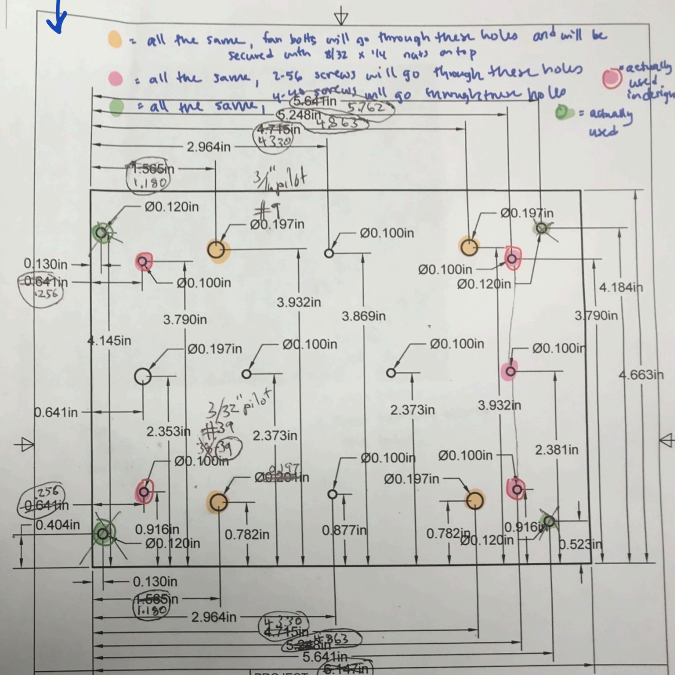 = all the same, fan bolts will go through these holes and will be
secured with 8/32 x 1/4 nuts on top
= all the same, 2-56 screws will go through these holes
= actually
used
in design
4-40 screws will go through these holes
= all the same,
= actually
used
5.641in
5.762
5.248in
4.863
4.715in
4.330
2.964in
1.565in
1.180
3/16" pilot
#9
Ø0.120in
Ø0.197in
Ø0.100in
Ø0.197in
0.130in
0.641in
.256
Ø0.100in
Ø0.100in
Ø0.120in
4.184in
3.932in
3.790in
3.869in
3.790in
4.145in
Ø0.197in
Ø0.100in
Ø0.100in
Ø0.100in
4.663in
0.641in
2.353in
3/32" pilot
#39
38/39
2.373in
2.373in
3.932in
2.381in
Ø0.100in
0.197
Ø0.201in
Ø0.100in
Ø0.197in
Ø0.100in
.256
0.641in
0.404in
0.916in
Ø0.120in
0.782in
0.877in
0.782in
Ø0.120in
0.916in
0.523in
0.130in
1.565in
1.180
2.964in
4.330
4.715in
4.863
5.248in
5.641in
6.147in
PROJECT